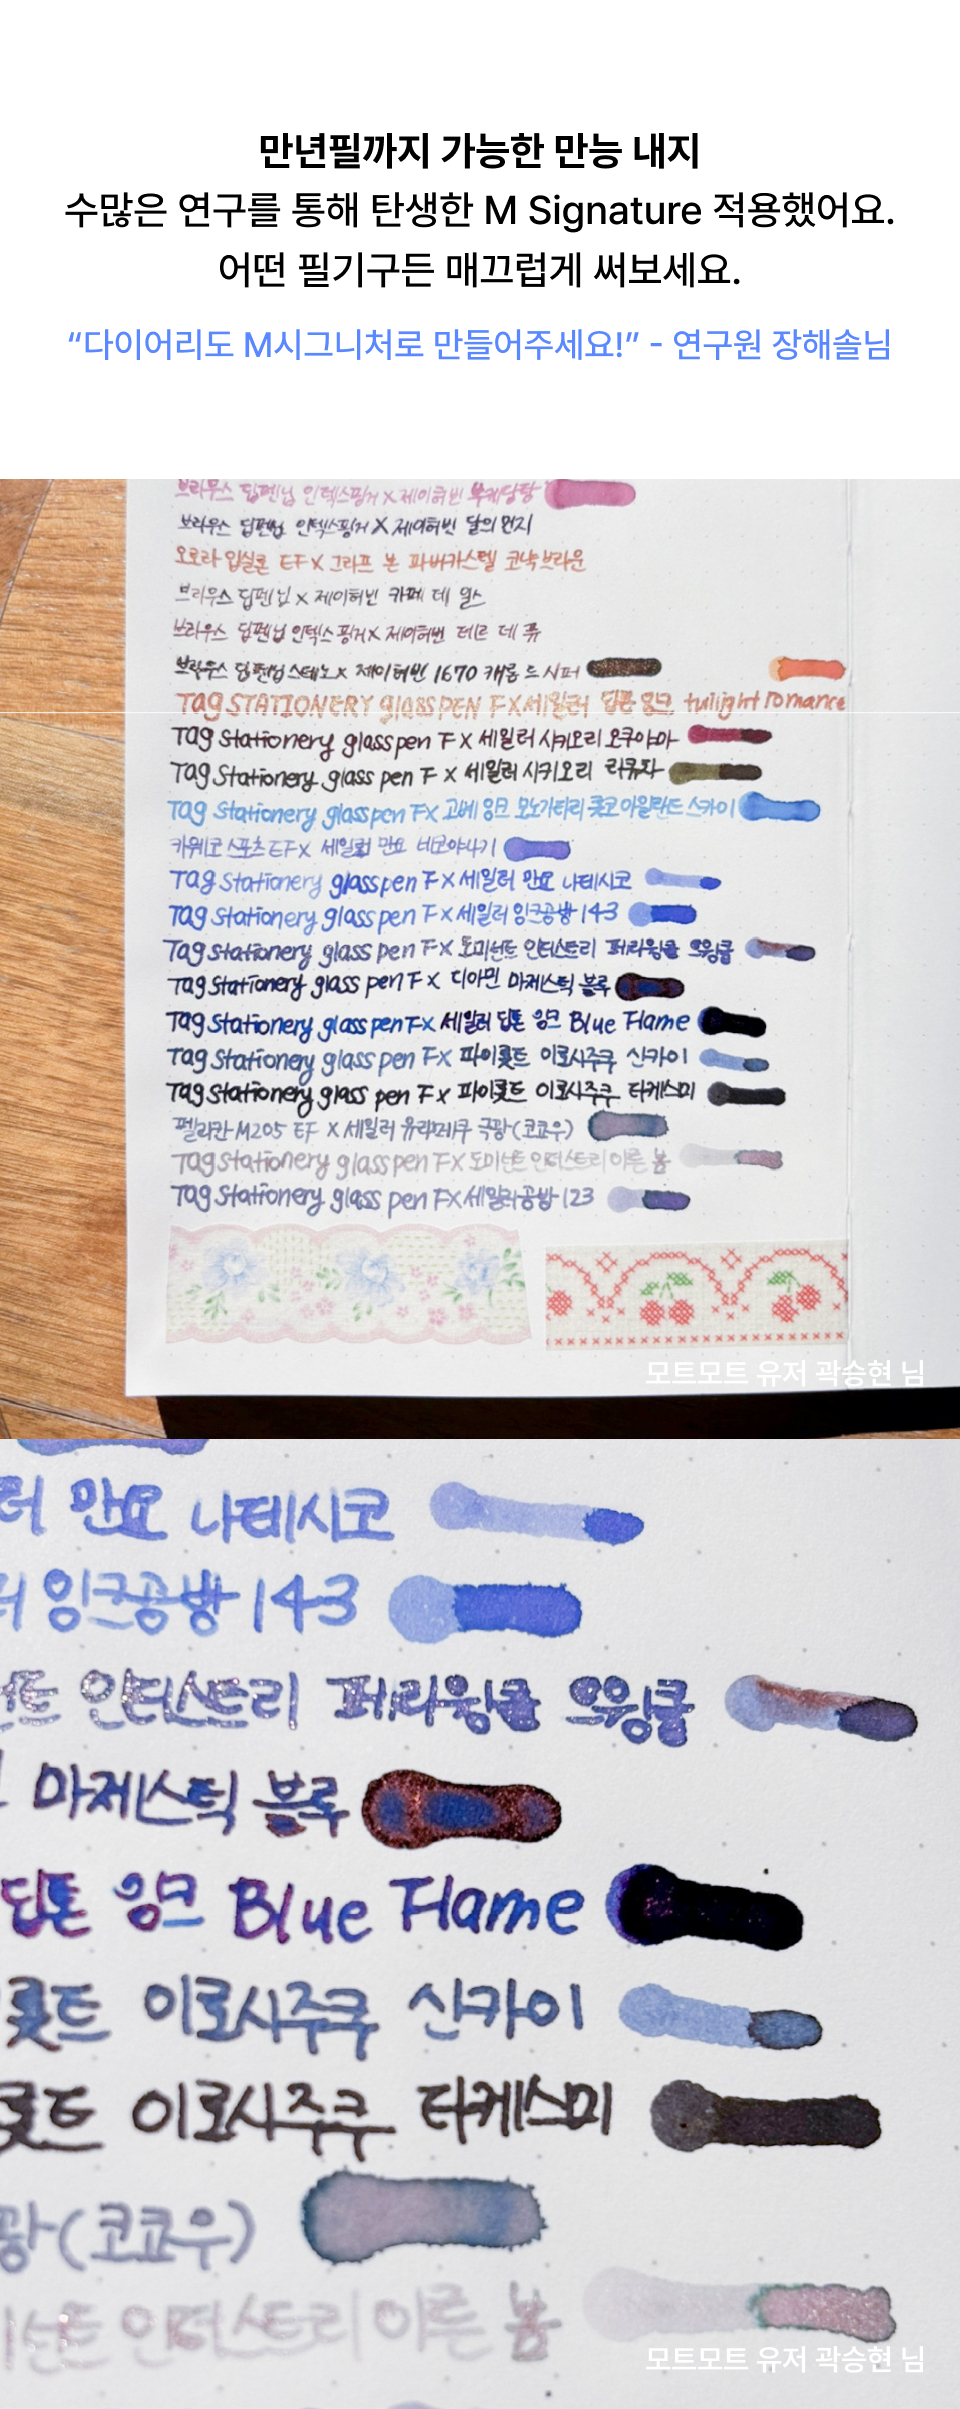 만년필까지 가능한 만능 내지
수많은 연구를 통해 탄생한 M Signature 적용했어요.
어떤 필기구든 매끄럽게 써보세요.
“다이어리도 M시그니처로 만들어주세요!” - 연구원 장해솔님
브라우스 딥펜닙 인덱스핑거 X 제이허빈 부케당탕
브라우스 딥펜닙 인덱스핑거 X 제이허빈 달의 먼지
오로라 입실론 EF X 그라프 본 파버카스텔 코냑브라운
브라우스 딥펜닙 X 제이허빈 카페 데 일스
브라우스 딥펜닙 인덱스핑거 X 제이허빈 떼르 데 퓨
브라우스 딥펜닙 스테노 X 제이허빈 1670 캐롭 드 시퍼
Tag STATIONERY glass PEN F X 세일러 딥톤 잉크 twilight romance
Tag Stationery glass pen F X 세일러 시키오리 오쿠야마
Tag Stationery glass pen F X 세일러 시키오리 리큐차
Tag Stationery glass pen F X 고베 잉크 모노가타리 롯코 아일랜드 스카이
카웨코 스포츠 EF X 세일러 만요 비로야나기
Tag Stationery glass pen F X 세일러 만요 나데시코
Tag Stationery glass pen F X 세일러 잉크공방 143
Tag Stationery glass pen F X 도미넌트 인더스트리 페리윙클 으윙클
Tag Stationery glass pen F X 디아민 마제스틱 블루
Tag Stationery glass pen F X 세일러 딥톤 잉크 Blue Flame
Tag Stationery glass pen F X 파이롯트 이로시주쿠 신카이
Tag Stationery glass pen F X 파이롯트 이로시주쿠 타케스미
펠리칸 M205 EF X 세일러 유라메쿠 극광(코쿄우)
Tag Stationery glass pen F X 도미넌트 인더스트리 이른 봄
Tag Stationery glass pen F X 세일러공방 123
모트모트 유저 곽승현 님
러 만요 나데시코
러 잉크공방 143
넌트 인더스트리 페리윙클 으윙클
마제스틱 블루
딥톤 잉크 Blue Flame
롯트 이로시주쿠 신카이
롯트 이로시주쿠 타케스미
광(코쿄우)
미넌트 인더스트리 이른 봄
모트모트 유저 곽승현 님